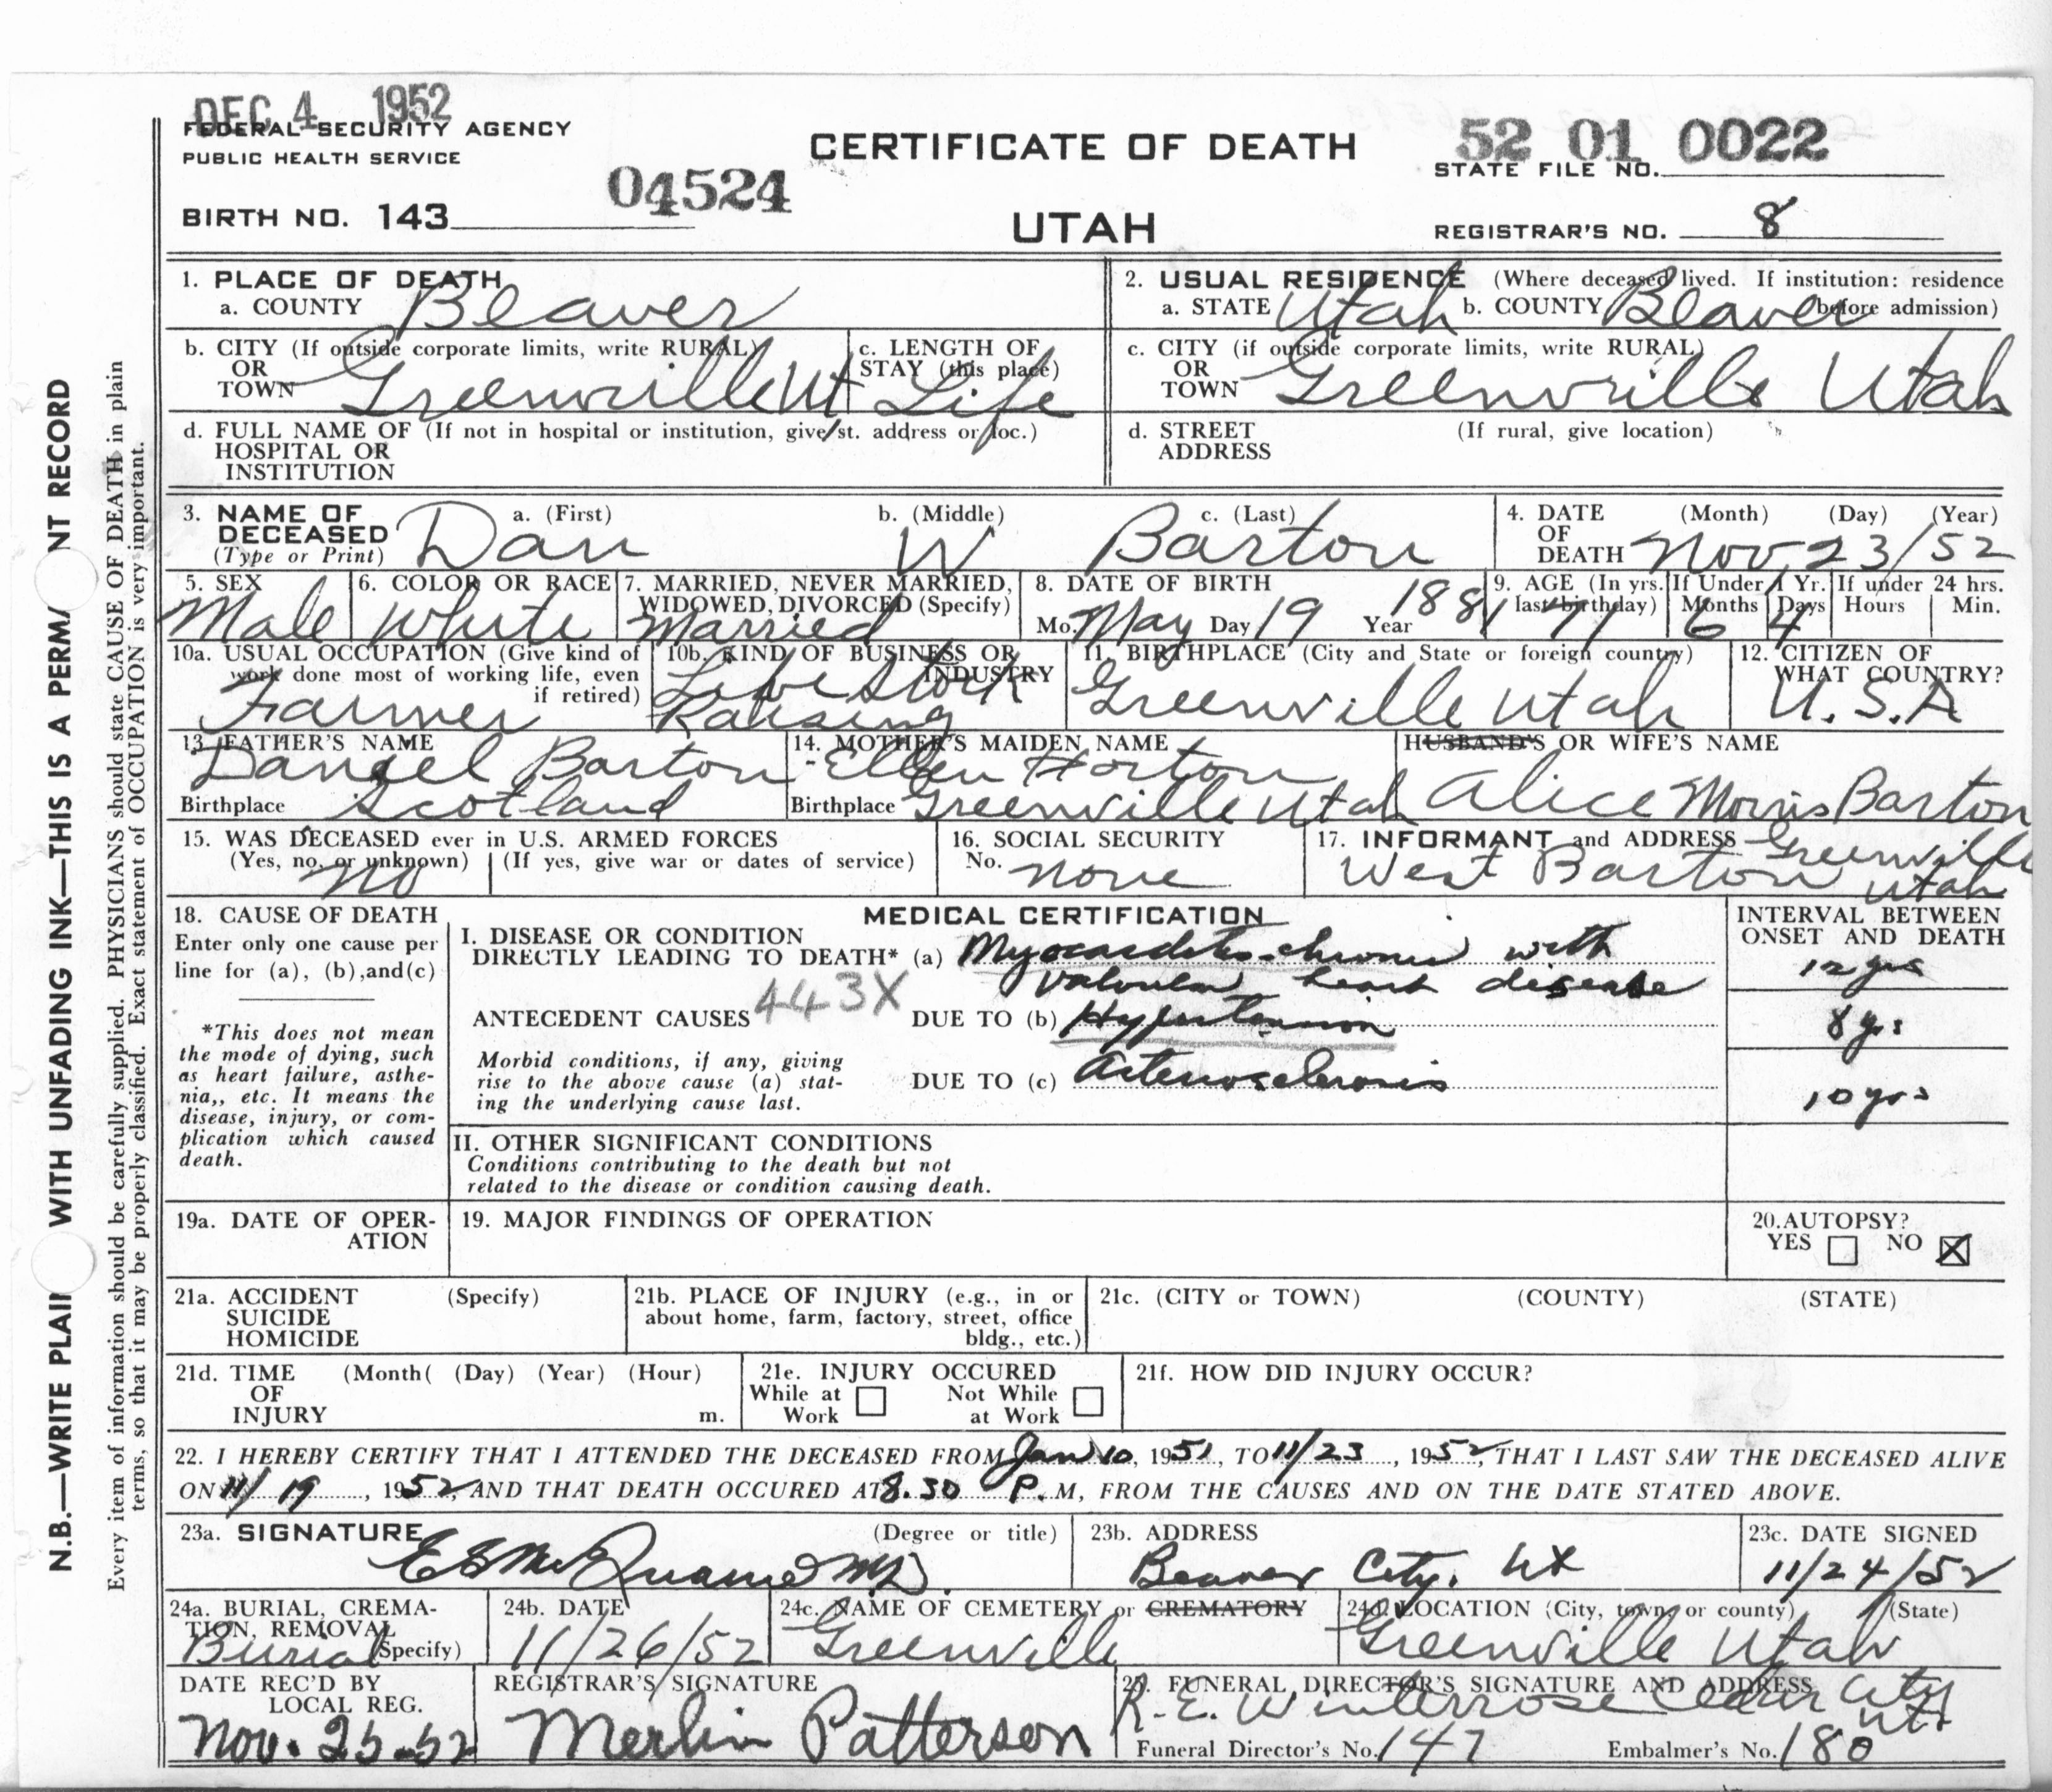 DEC 4 1952
FEDERAL SECURITY AGENCY
PUBLIC HEALTH SERVICE
CERTIFICATE OF DEATH
52 01 0022
STATE FILE NO.
04524
BIRTH NO. 143
UTAH
REGISTRAR'S NO. 8
1. PLACE OF DEATH
a. COUNTY Beaver
2. USUAL RESIDENCE (Where deceased lived. If institution: residence before admission)
a. STATE Utah b. COUNTY Beaver
b. CITY (If outside corporate limits, write RURAL)
OR
TOWN Greenville Ut
c. LENGTH OF
STAY (this place)
Life
c. CITY (if outside corporate limits, write RURAL)
OR
TOWN Greenville Utah
d. FULL NAME OF (If not in hospital or institution, give st. address or loc.)
HOSPITAL OR
INSTITUTION
d. STREET (If rural, give location)
ADDRESS
3. NAME OF
DECEASED
(Type or Print)
a. (First) b. (Middle) c. (Last)
Dan W Barton
4. DATE (Month) (Day) (Year)
OF
DEATH Nov 23/52
5. SEX
Male
6. COLOR OR RACE
White
7. MARRIED, NEVER MARRIED,
WIDOWED, DIVORCED (Specify)
Married
8. DATE OF BIRTH
Mo. May Day 19 Year 1881
9. AGE (In yrs. last birthday)
71
If Under 1 Yr.
Months Days
6 4
If under 24 hrs.
Hours Min.
10a. USUAL OCCUPATION (Give kind of
work done most of working life, even
if retired)
Farmer
10b. KIND OF BUSINESS OR
INDUSTRY
Livestock
Raising
11. BIRTHPLACE (City and State or foreign country)
Greenville Utah
12. CITIZEN OF
WHAT COUNTRY?
U.S.A
13. FATHER'S NAME
Daniel Barton
Birthplace Scotland
14. MOTHER'S MAIDEN NAME
Ellen Horton
Birthplace Greenville Utah
HUSBAND'S OR WIFE'S NAME
Alice Morris Barton
15. WAS DECEASED ever in U.S. ARMED FORCES
(Yes, no, or unknown) (If yes, give war or dates of service)
no
16. SOCIAL SECURITY
No. none
17. INFORMANT and ADDRESS Greenville
West Barton Utah
18. CAUSE OF DEATH
Enter only one cause per
line for (a), (b), and (c)
*This does not mean
the mode of dying, such
as heart failure, asthe-
nia,, etc. It means the
disease, injury, or com-
plication which caused
death.
MEDICAL CERTIFICATION
INTERVAL BETWEEN
ONSET AND DEATH
I. DISEASE OR CONDITION
DIRECTLY LEADING TO DEATH* (a) Myocarditis-chronic with
valvular heart disease
12 yrs
443X
ANTECEDENT CAUSES DUE TO (b) Hypertension
8 yrs
Morbid conditions, if any, giving
rise to the above cause (a) stat-
ing the underlying cause last.
DUE TO (c) Arteriosclerosis
10 yrs
II. OTHER SIGNIFICANT CONDITIONS
Conditions contributing to the death but not
related to the disease or condition causing death.
19a. DATE OF OPER-
ATION
19. MAJOR FINDINGS OF OPERATION
20. AUTOPSY?
YES NO X
21a. ACCIDENT (Specify)
SUICIDE
HOMICIDE
21b. PLACE OF INJURY (e.g., in or
about home, farm, factory, street, office
bldg., etc.)
21c. (CITY or TOWN) (COUNTY) (STATE)
21d. TIME (Month( (Day) (Year) (Hour)
OF
INJURY m.
21e. INJURY OCCURED
While at Not While
Work at Work
21f. HOW DID INJURY OCCUR?
22. I HEREBY CERTIFY THAT I ATTENDED THE DECEASED FROM Jan 10, 1951, TO 11/23, 1952, THAT I LAST SAW THE DECEASED ALIVE
ON 11/19, 1952, AND THAT DEATH OCCURED AT 8.30 P. M, FROM THE CAUSES AND ON THE DATE STATED ABOVE.
23a. SIGNATURE (Degree or title)
M.D.
23b. ADDRESS
Beaver City, Ut
23c. DATE SIGNED
11/24/52
24a. BURIAL, CREMA-
TION, REMOVAL
(Specify)
Burial
24b. DATE
11/26/52
24c. NAME OF CEMETERY or CREMATORY
Greenville
24d. LOCATION (City, town, or county) (State)
Greenville Utah
DATE REC'D BY
LOCAL REG.
Nov. 25-52
REGISTRAR'S SIGNATURE
Merlin Patterson
25. FUNERAL DIRECTOR'S SIGNATURE AND ADDRESS
R.E. Winterrose Cedar City
Ut.
Funeral Director's No. 147 Embalmer's No. 180
N.B.—WRITE PLAI WITH UNFADING INK—THIS IS A PERMA NT RECORD
Every item of information should be carefully supplied. PHYSICIANS should state CAUSE OF DEATH in plain
terms, so that it may be properly classified. Exact statement of OCCUPATION is very important.